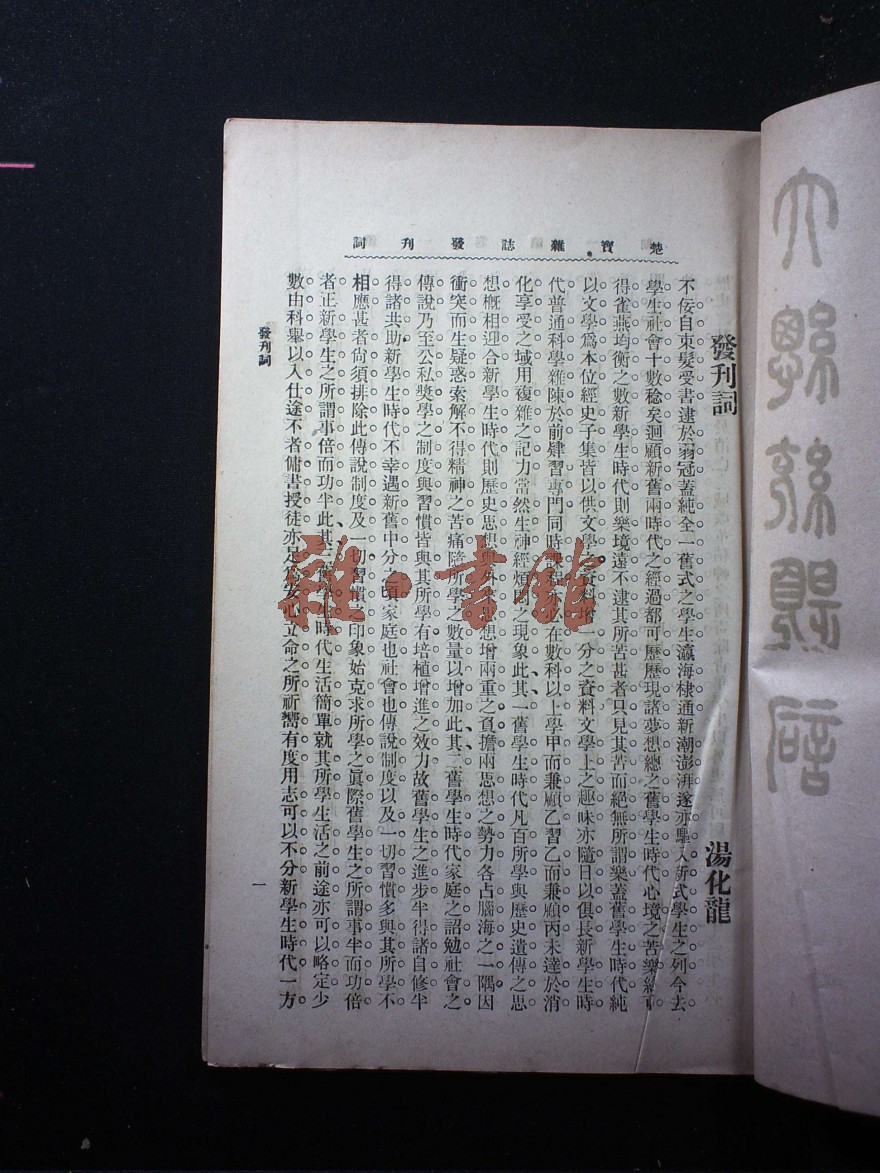 楚寶雜誌發刊詞
發刊詞
湯化龍
不佞自束髮受書逮於弱冠蓋純全一舊式之學生瀛海棣通新潮澎湃遂亦驅入新式學生之列今去
學生社會十數稔矣迴顧新舊兩時代之經過都可歷歷現諸夢想總之舊學生時代心境之苦樂
得雀燕均衡之數新學生時代則樂境遠不逮其所苦甚者只見其苦而絕無所謂樂蓋舊學生時代純
以文學爲本位經史子集皆以供文學之資料增一分之資料文學上之趣味亦隨日以俱長新學生時
代普通科學雜陳於前肄習專門同時課程亦必在數科以上學甲而兼顧乙習乙而兼顧丙未達於消
化享受之域用複雜之記力當然生神經煩悶之現象此其一舊學生時代凡百所學與歷史遺傳之思
想概相迎合新學生時代則歷史思想與外來思想增兩重之負擔兩思想之勢力各占腦海之一隅因
衝突而生疑惑索解不得精神之苦痛隨所學之數量以增加此其二舊學生時代家庭之詔勉社會之
傳說乃至公私獎學之制度與習慣皆與其所學有培植增進之效力故舊學生之進步半得諸自修半
得諸共助新學生時代不幸遇新舊中分之頃家庭也社會也傳說制度以及一切習慣多與其所學不
相應甚者尙須排除此傳說制度及一切習慣之印象始克求所學之眞際舊學生之所謂事半而功倍
者正新學生之所謂事倍而功半此其三舊學生時代生活簡單就其所學生活之前途亦可以略定少
數由科舉以入仕途不者傭書授徒亦足爲安心立命之所祈嚮有度用志可以不分新學生時代一方
發刊詞
一
雜·書館